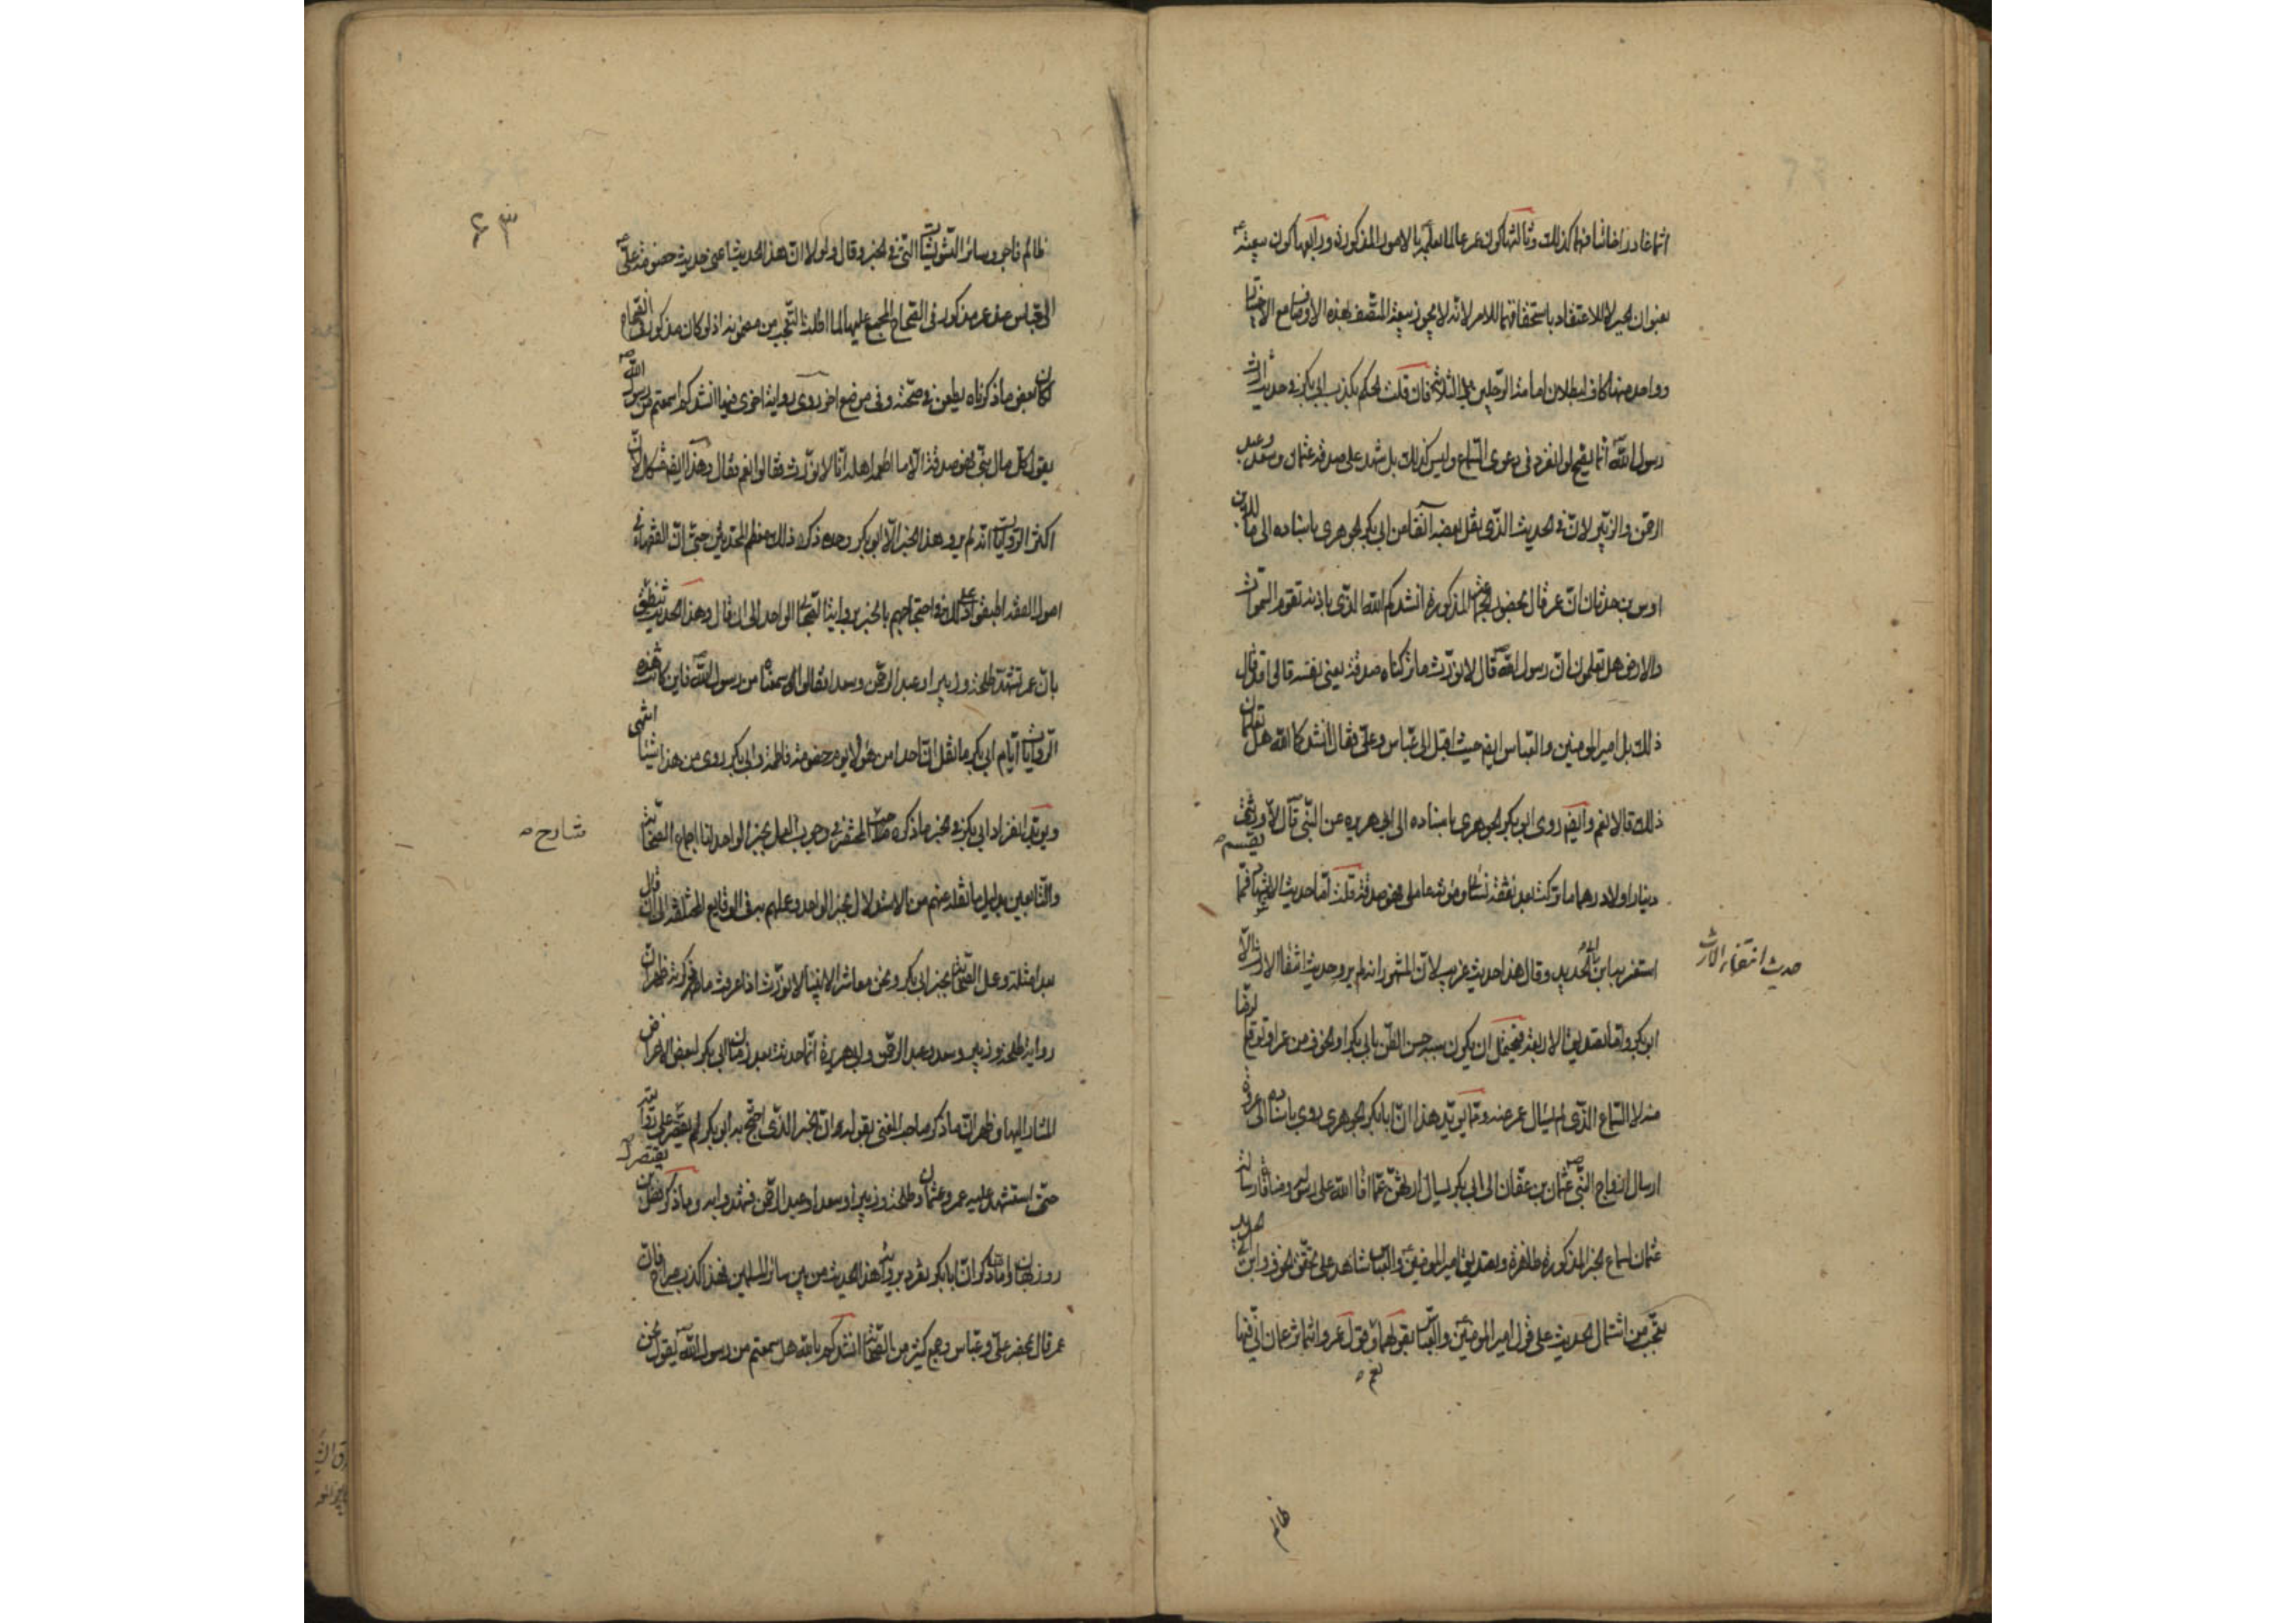 اثما غادرا خائنا فهما كذلك وثالثها كون عمر عالما بعلمه بالامور المذكورة ورابعها كون بيعته
بعنوان الجبر لا للاعتقاد باستحقاقهما للامر لانه لا يجوز بيعة المتصف بهذه الاوصاف مع الاختيار
وواحد منها كاف لبطلان امامة الرجلين بل الثلاثة فان قلت الحكم بكذب ابي بكر في حديث
رسول الله انما يصح لو انفرد في دعوى السماع وليس كذلك بل شهد على صدقه عثمان وسعد وعبد
الرحمن والزبير لان في الحديث الذي نقل بعضه آنفا من ابي بكر الجوهري باسناده الى مالك بن
اوس بن حدثان ان عمر قال بحضور الجماعة المذكورة انشدكم الله الذي باذنه تقوم السموات
والارض هل تعلمون ان رسول الله قال لا نورث ما تركناه صدقة يعني نفسه قالوا قد قال
ذلك بل امير المومنين والعباس ايضا حيث اقبل الى عباس وعلي فقال انشدكما الله هل تعلمان
ذلك قالا نعم وايضا روى ابو بكر الجوهري باسناده الى ابي هريرة عن النبي قال لا ورثتي
يقسم
دينارا ولا درهما ما تركت بعد نفقة نسائي ومؤنة عاملي فهو صدقة قلت اما حديث الاشهاد فمما
استغربه ابن ابي الحديد وقال هذا حديث غريب لان المشهور انه لم يرو حديث انتفاء الارث الا
حديث انتفاء الارث
ابو بكر واما تصديق الاربعة فيحتمل ان يكون سببه حسن الظن بابي بكر او الخوف من عمر او توقع
منه لا السماع الذي لم يسأل عمر عنه ومما يؤيد هذا ان ابا بكر الجوهري روى باسناده الى عروة
ارسال ازواج النبي عثمان بن عفان الى ابي بكر يسأل ارثهن مما افاء الله على رسوله
عثمان سماع الخبر المذكور ظاهرة وتصديق امير المومنين والعباس شاهد على تحقق الخوف وابن ابي الحديد
تعجب من اشتمال الحديث على قول امير المومنين والعباس بقولهما نعم وقول عمر وانتما تزعمان اني فيها
ظالم
٦٣
ظالم فاجر وسائر التشويشات التي في الخبر وقال ولولا ان هذا الحديث اعني حديث خصومة علي
العباس عند عمر مذكور في الصحاح المجمع عليها لما اطلت التعجب من مضمونه اذ لو كان مذكورا في غير الصحاح
لكان بعض ما ذكرناه يطعن في صحته وفي موضع اخر روى رواية اخرى فيها انشدكم اسمعتم من رسول الله
يقول كل مال نبي فهو صدقة الا ما اطعمه اهله انا لا نورث فقالوا نعم فقال وهذا ايضا مشكل لان
اكثر الروايات انه لم يرو هذا الخبر الا ابو بكر وحده ذكر ذلك معظم المحدثين حتى ان الفقهاء في
اصول الفقه اطبقوا على ذلك في احتجاجهم بالخبر برواية الصحابي الواحد الى ان قال وهذا الحديث ينطق
بان عمر استشهد طلحة وزبيرا وعبد الرحمن وسعدا فقالوا سمعناه من رسول الله فاين كانت هذه
الروايات ايام ابي بكر ما نقل ان احدا من هؤلاء يوم خصومة فاطمة وابي بكر روى من هذا شيئا انتهى
ويؤيد انفراد ابي بكر في الخبر ما ذكره صاحب المختصر في وجوب العمل بخبر الواحد لنا اجماع الصحابة
شارح
والتابعين بدليل ما نقل عنهم من الاستدلال بخبر الواحد وعملهم به في الوقايع المختلفة الى ان قال
بعد امثلة وعمل الصحابة بخبر ابي بكر ونحن معاشر الانبياء لا نورث اذا عرفت ما ذكرته ظهر ان
رواية طلحة وزبير وسعد وعبد الرحمن وابي هريرة انما حدثت بعد زمان ابي بكر لبعض الاغراض
المشار اليها وظهر ان ما ذكر صاحب المغني بقوله ان الخبر الذي احتج به ابو بكر لم يقتصر على روايته
يقتصر
حتى استشهد عليه عمر وعثمان وطلحة وزبيرا وسعدا وعبد الرحمن فشهدوا به وما ذكر فضل بن
روزبهان واما ما ذكر ان ابا بكر تفرد برواية هذا الحديث من بين سائر المسلمين فهذا كذب صراح فان
عمر قال بمحضر علي وعباس وجمع كثير من الصحابة انشدكم بالله هل سمعتم من رسول الله يقول نحن